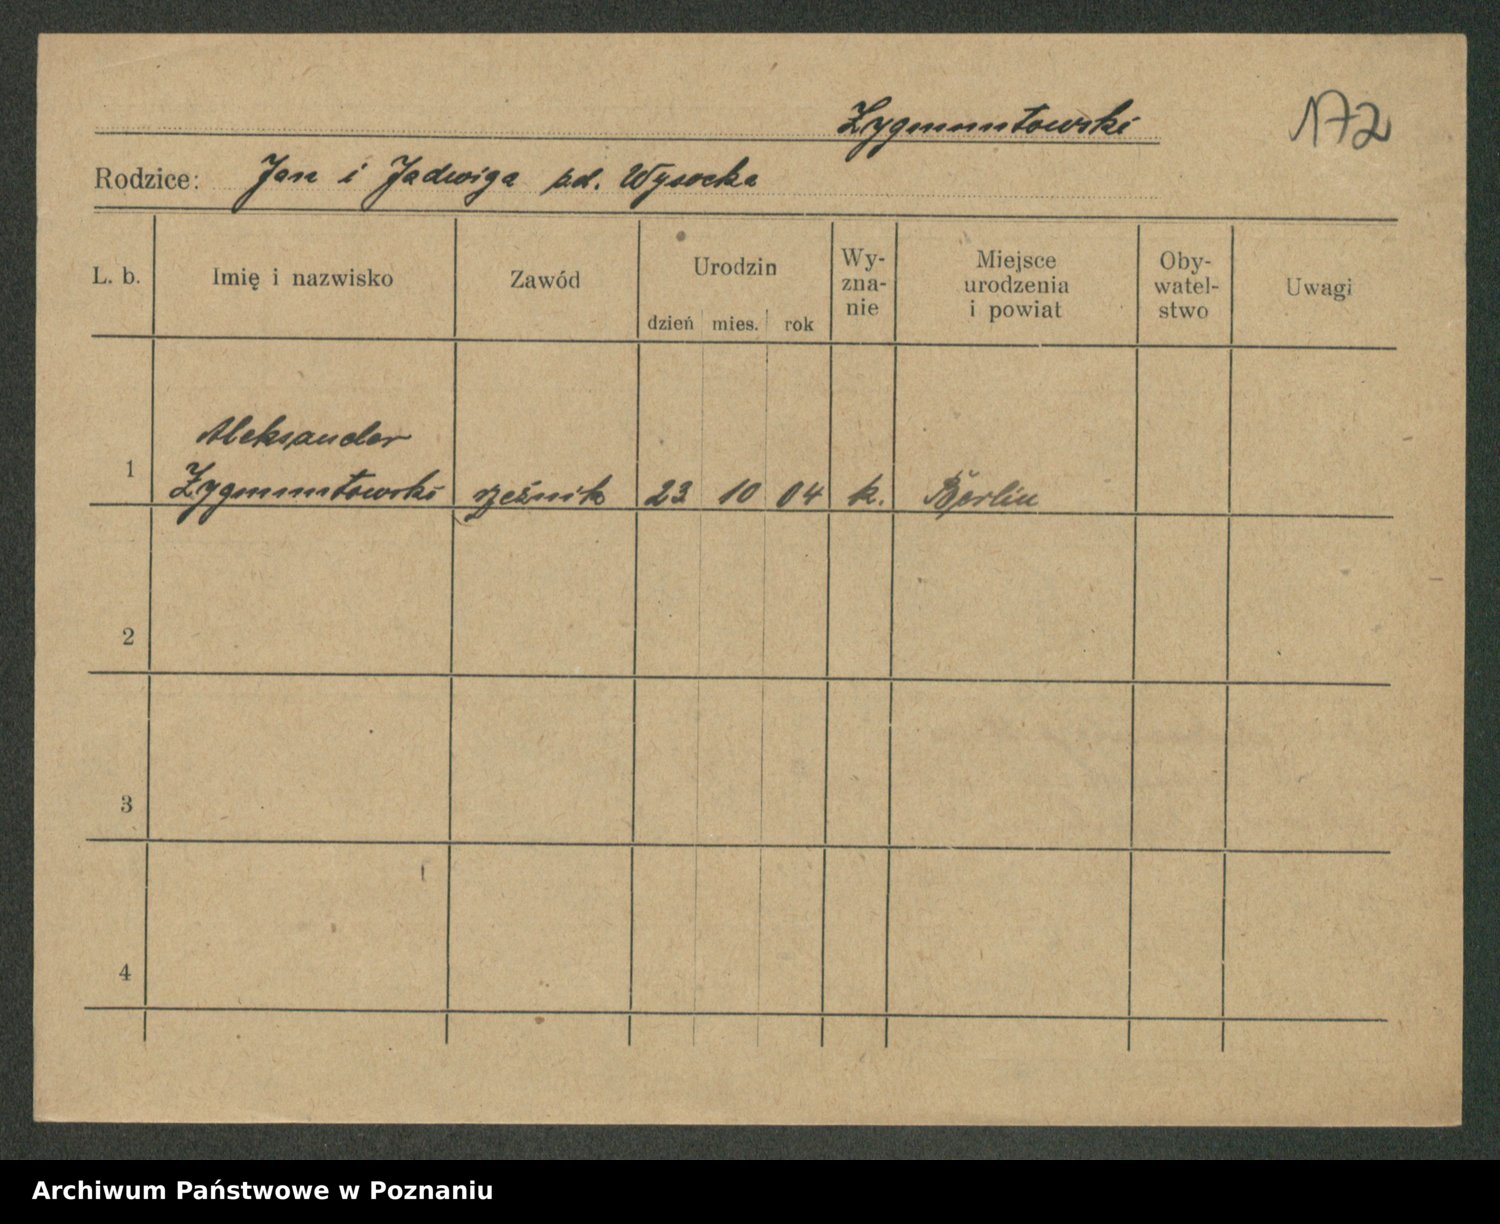 Zygmuntowski
172
Rodzice: Jan i Jadwiga zd. Wysocka
L. b.
Imię i nazwisko
Zawód
Urodzin
dzień mies. rok
Wy-
zna-
nie
Miejsce
urodzenia
i powiat
Oby-
watel-
stwo
Uwagi
Aleksander
1 Zygmuntowski rzeźnik 23 10 04 k. Berlin
2
3
4
Archiwum Państwowe w Poznaniu